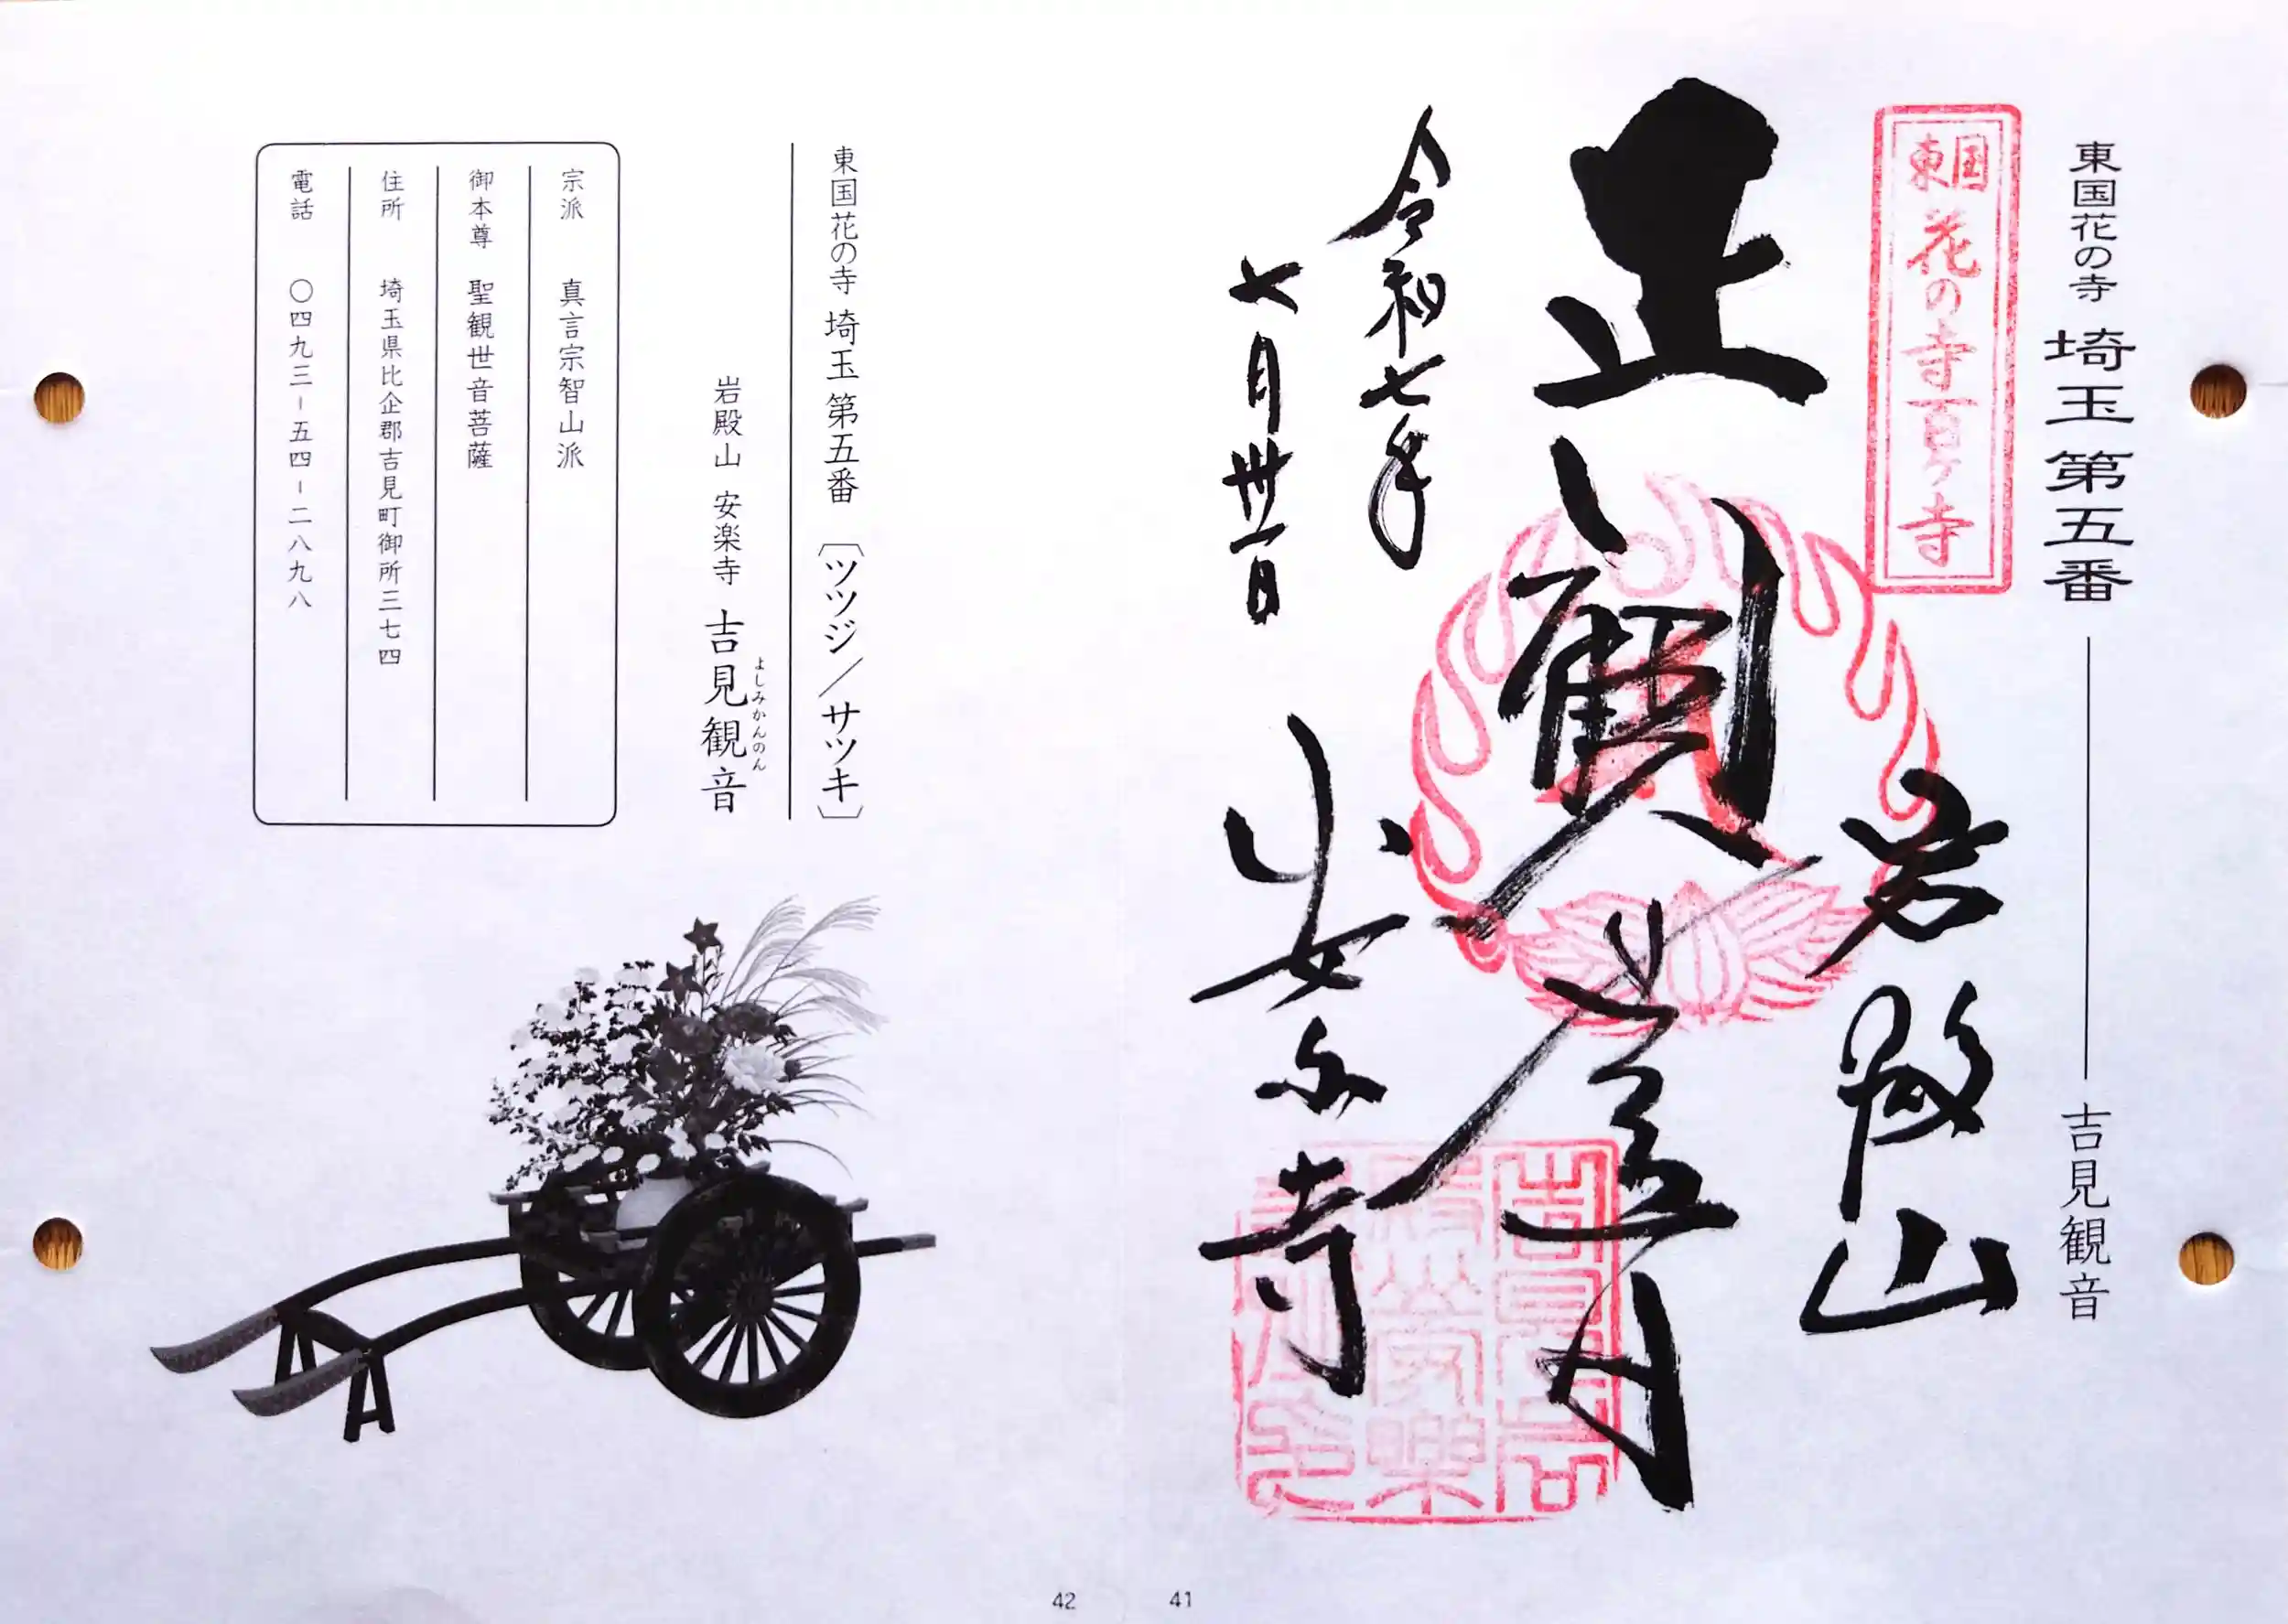 東国花の寺 埼玉 第五番 吉見観音
東国花の寺百ヶ寺
岩殿山
正観世音
令和七年
七月卅一日
安楽寺
41
東国花の寺 埼玉 第五番 〔ツツジ/サツキ〕
岩殿山 安楽寺 吉見観音
よしみかんのん
宗派 真言宗智山派
御本尊 聖観世音菩薩
住所 埼玉県比企郡吉見町御所三七四
電話 〇四九三-五四-二八九八
42